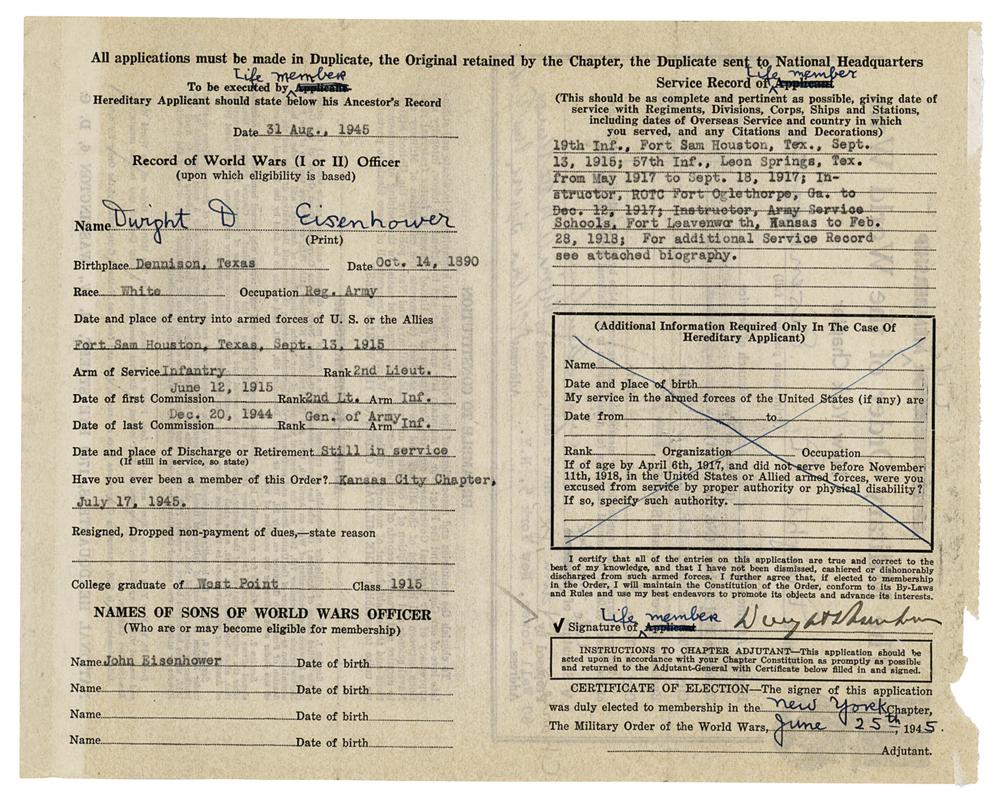 All applications must be made in Duplicate, the Original retained by the Chapter, the Duplicate sent to National Headquarters
Life member
To be executed by Applicant.
Hereditary Applicant should state below his Ancestor's Record
Date 31 Aug., 1945
Record of World Wars (I or II) Officer
(upon which eligibility is based)
Name Dwight D Eisenhower
(Print)
Birthplace Dennison, Texas Date Oct. 14, 1890
Race White Occupation Reg. Army
Date and place of entry into armed forces of U. S. or the Allies
Fort Sam Houston, Texas, Sept. 13, 1915
Arm of Service Infantry Rank 2nd Lieut.
June 12, 1915
Date of first Commission Rank 2nd Lt. Arm Inf.
Dec. 20, 1944 Gen. of Army
Date of last Commission Rank Arm Inf.
Date and place of Discharge or Retirement Still in service
(If still in service, so state)
Have you ever been a member of this Order? Kansas City Chapter,
July 17, 1945.
Resigned, Dropped non-payment of dues,—state reason
College graduate of West Point Class 1915
NAMES OF SONS OF WORLD WARS OFFICER
(Who are or may become eligible for membership)
Name John Eisenhower Date of birth
Name Date of birth
Name Date of birth
Name Date of birth
Life member
Service Record of Applicant
(This should be as complete and pertinent as possible, giving date of
service with Regiments, Divisions, Corps, Ships and Stations,
including dates of Overseas Service and country in which
you served, and any Citations and Decorations)
19th Inf., Fort Sam Houston, Tex., Sept.
13, 1915; 57th Inf., Leon Springs, Tex.
from May 1917 to Sept. 18, 1917; In-
structor, ROTC Fort Oglethorpe, Ga. to
Dec. 12, 1917; Instructor, Army Service
Schools, Fort Leavenworth, Kansas to Feb.
28, 1918; For additional Service Record
see attached biography.
(Additional Information Required Only In The Case Of
Hereditary Applicant)
Name
Date and place of birth
My service in the armed forces of the United States (if any) are
Date from to
Rank Organization Occupation
If of age by April 6th, 1917, and did not serve before November
11th, 1918, in the United States or Allied armed forces, were you
excused from service by proper authority or physical disability?
If so, specify such authority.
I certify that all of the entries on this application are true and correct to the
best of my knowledge, and that I have not been dismissed, cashiered or dishonorably
discharged from such armed forces. I further agree that, if elected to membership
in the Order, I will maintain the Constitution of the Order, conform to its By-Laws
and Rules and use my best endeavors to promote its objects and advance its interests.
Life member
✓ Signature of Applicant Dwight D Eisenhower
INSTRUCTIONS TO CHAPTER ADJUTANT—This application should be
acted upon in accordance with your Chapter Constitution as promptly as possible
and returned to the Adjutant-General with Certificate below filled in and signed.
CERTIFICATE OF ELECTION—The signer of this application
was duly elected to membership in the New York Chapter,
The Military Order of the World Wars, June 25th, 1945.
Adjutant.